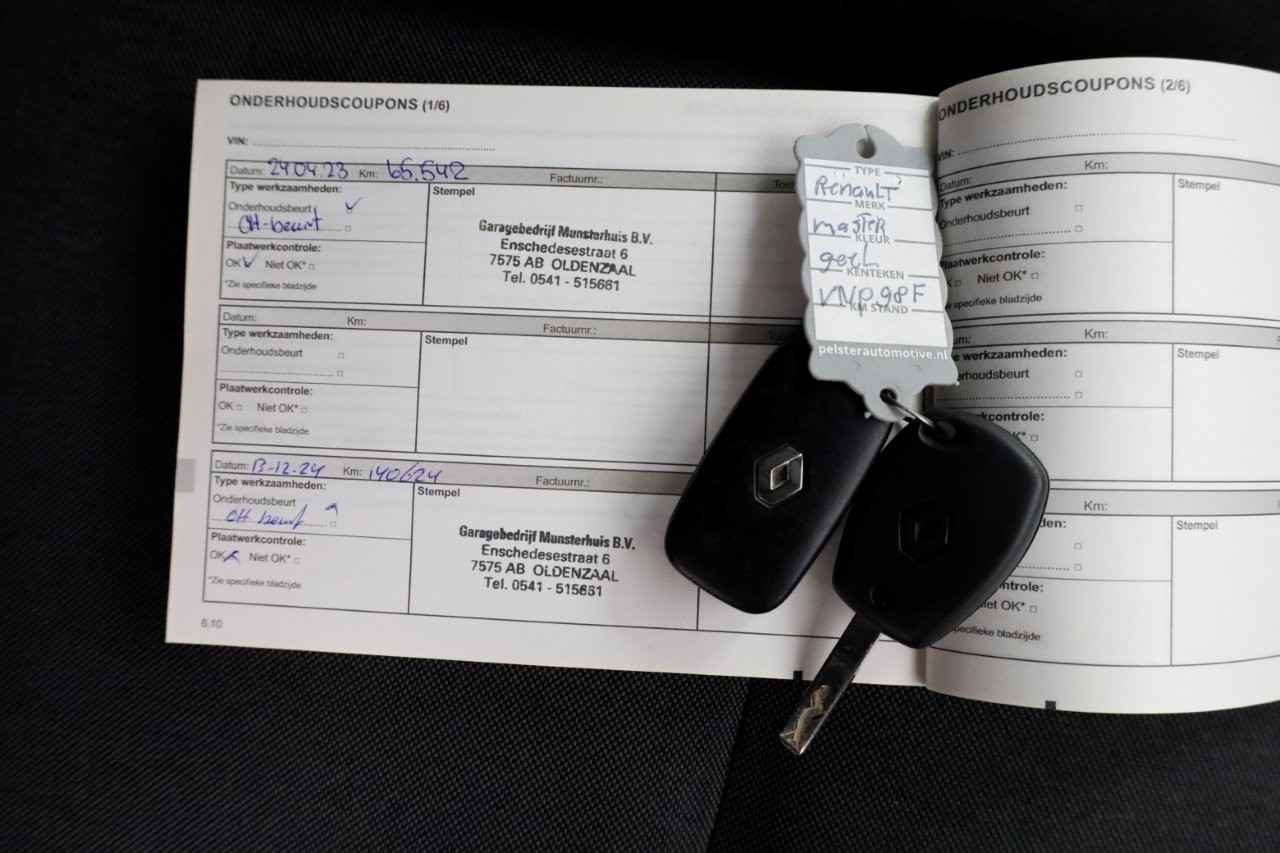 ONDERHOUDSCOUPONS (1/6)
VIN:
Datum: 24.04.23 Km: 65.542 Factuurnr.:
Type werkzaamheden:
Onderhoudsbeurt
OH-beurt
Plaatwerkcontrole:
OK Niet OK*
*Zie specifieke bladzijde
Stempel
Garagebedrijf Munsterhuis B.V.
Enschedesestraat 6
7575 AB OLDENZAAL
Tel. 0541 - 515661
Datum: Km: Factuurnr.:
Type werkzaamheden:
Onderhoudsbeurt
Plaatwerkcontrole:
OK Niet OK*
*Zie specifieke bladzijde
Stempel
Datum: 13-12-24 Km: 140624 Factuurnr.:
Type werkzaamheden:
Onderhoudsbeurt
OH beurt
Plaatwerkcontrole:
OK Niet OK*
*Zie specifieke bladzijde
Stempel
Garagebedrijf Munsterhuis B.V.
Enschedesestraat 6
7575 AB OLDENZAAL
Tel. 0541 - 515661
6.10
TYPE
Renault
MERK
master
KLEUR
geel
KENTEKEN
VNP98F
KM STAND
pelsterautomotive.nl
ONDERHOUDSCOUPONS (2/6)
VIN:
Datum: Km:
Type werkzaamheden:
Onderhoudsbeurt
Plaatwerkcontrole:
Niet OK*
specifieke bladzijde
Stempel
Km:
werkzaamheden:
Stempel
Km:
Stempel
OK*
specifieke bladzijde